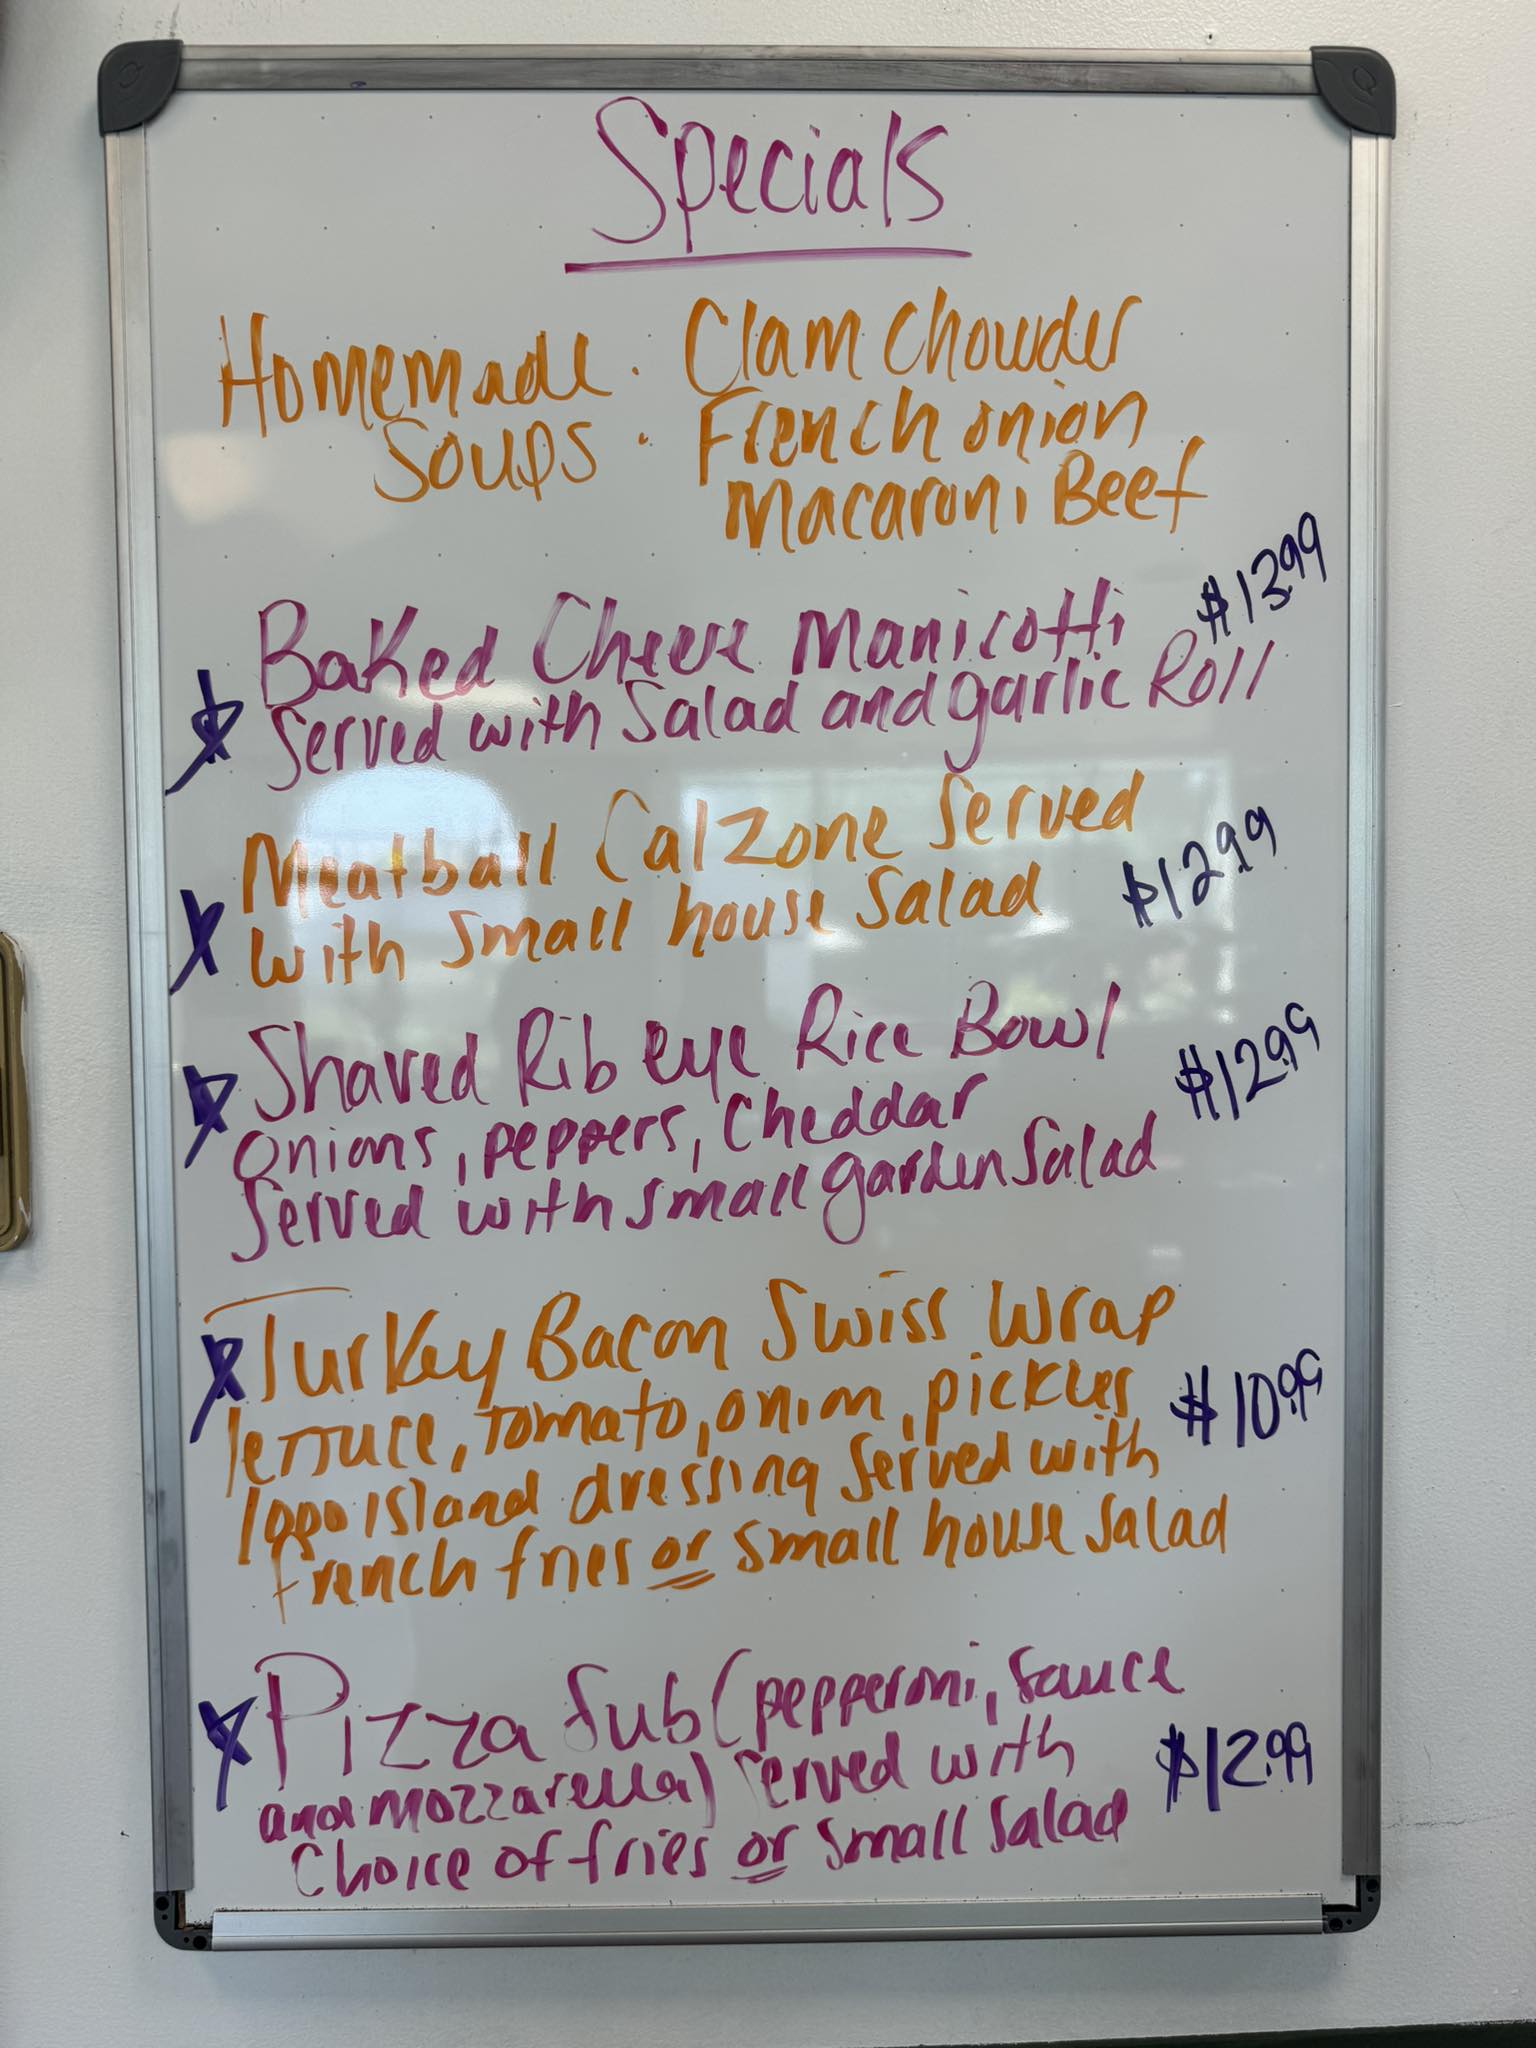 Specials
Homemade · Clam Chowder
Soups · French onion
Macaroni Beef
Baked Cheese Manicotti $13.99
Served with Salad and garlic Roll
Meatball Calzone Served
with Small house Salad $12.99
Shaved Rib eye Rice Bowl
onions, peppers, Cheddar $12.99
Served with small garden Salad
Turkey Bacon Swiss Wrap
lettuce, tomato, onion, pickles $10.99
1000 Island dressing Served with
french fries or small house salad
Pizza Sub (pepperoni, Sauce
and mozzarella) Served with $12.99
Choice of fries or Small Salad